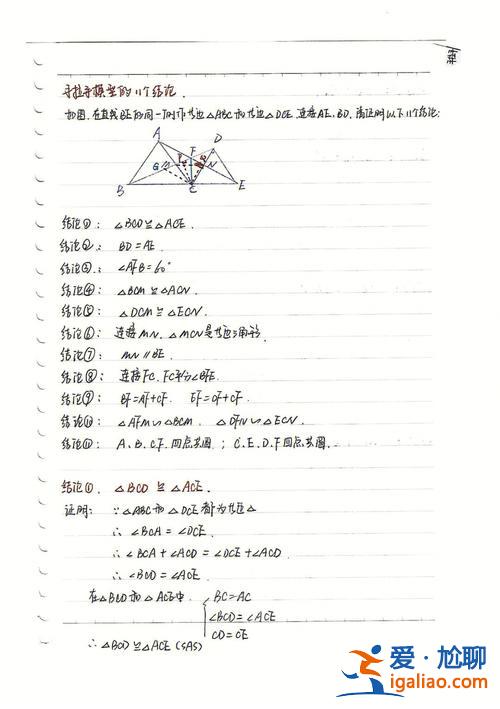 手拉手模型的11个结论.
如图.在直线BE的同一侧作等边△ABC和等边△DCE.连接AE、BD.请证明以下11个结论:
A D F P G M N B C E
结论①: △BCD≌△ACE.
结论②: BD=AE.
结论③: ∠AFB=60°
结论④: △BCM≌△ACN.
结论⑤: △DCM≌△ECN.
结论⑥: 连接MN. △MCN是等边三角形.
结论⑦: MN∥BE.
结论⑧: 连接FC. FC平分∠BFE.
结论⑨: BF=AF+CF. EF=DF+CF.
结论⑩: △AFM∽△BCM. △DFN∽△ECN.
结论⑪: A、B、C、F.四点共圆; C、E、D、F四点共圆.
结论①. △BCD≌△ACE.
证明: ∵△ABC和△DCE都为等边△
∴∠BCA=∠DCE.
∴∠BCA+∠ACD=∠DCE+∠ACD.
∴∠BCD=∠ACE.
在△BCD和△ACE中. BC=AC
∠BCD=∠ACE
CD=CE
∴△BCD≌△ACE(SAS)
爱·尬聊
igaliao.com